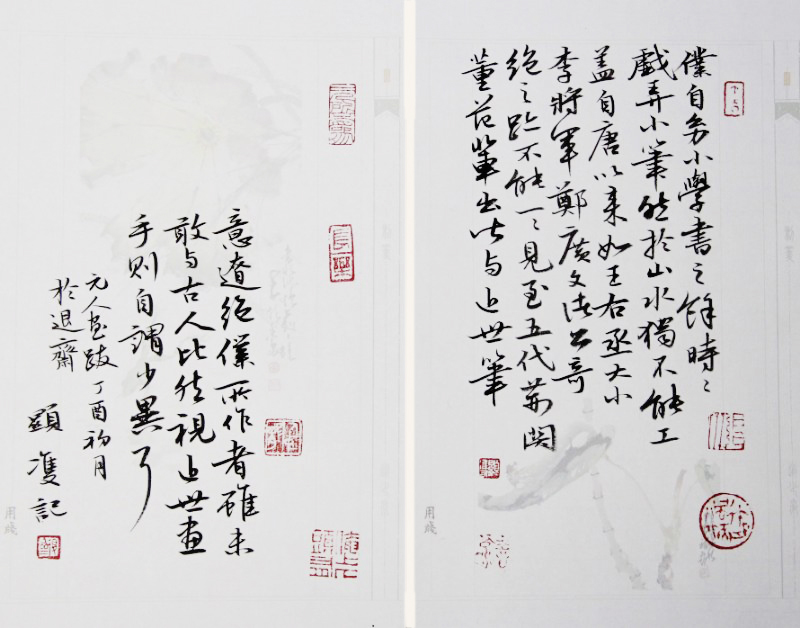 僕自幼小學書之餘時〻
戲弄小筆然於山水獨不能工
盖自唐以来如王右丞大小
李將軍鄭廣文諸公奇
絶之跡不能一〻見至五代荊関
董范輩出皆与近世筆
意遼絶僕所作者雖未
敢与古人比然視近世畫
手則自謂少異耳
元人畫跋丁酉初月
於退齋
顯 記
用箋
用箋